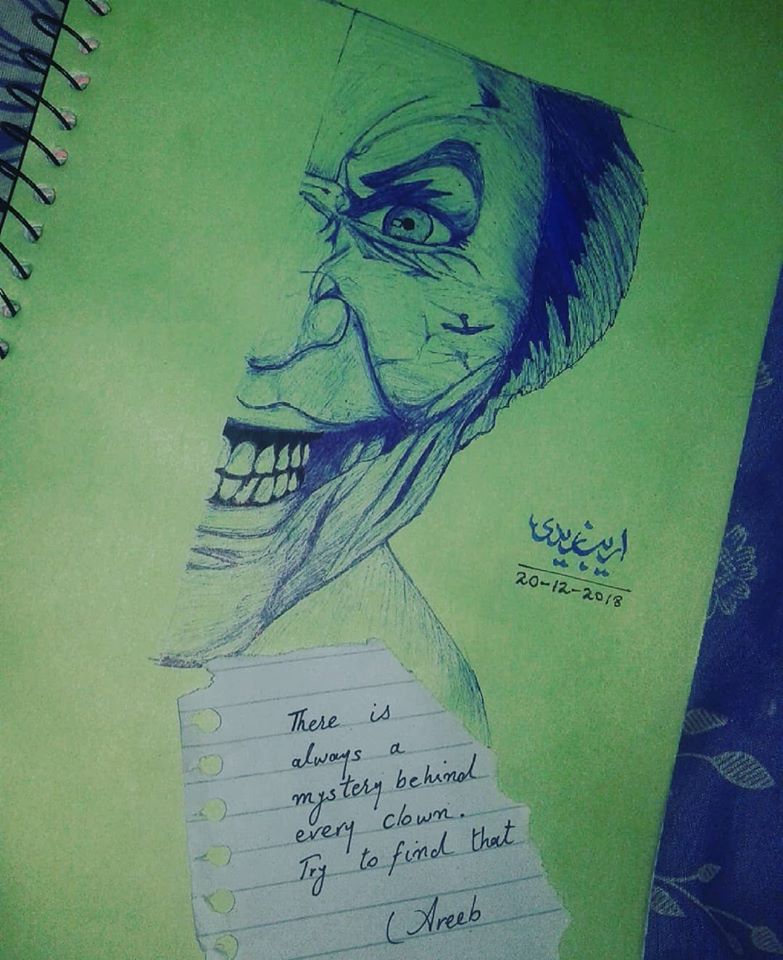 اریب زیدی
20-12-2018
There is
always a
mystery behind
every clown.
Try to find that
(Areeb